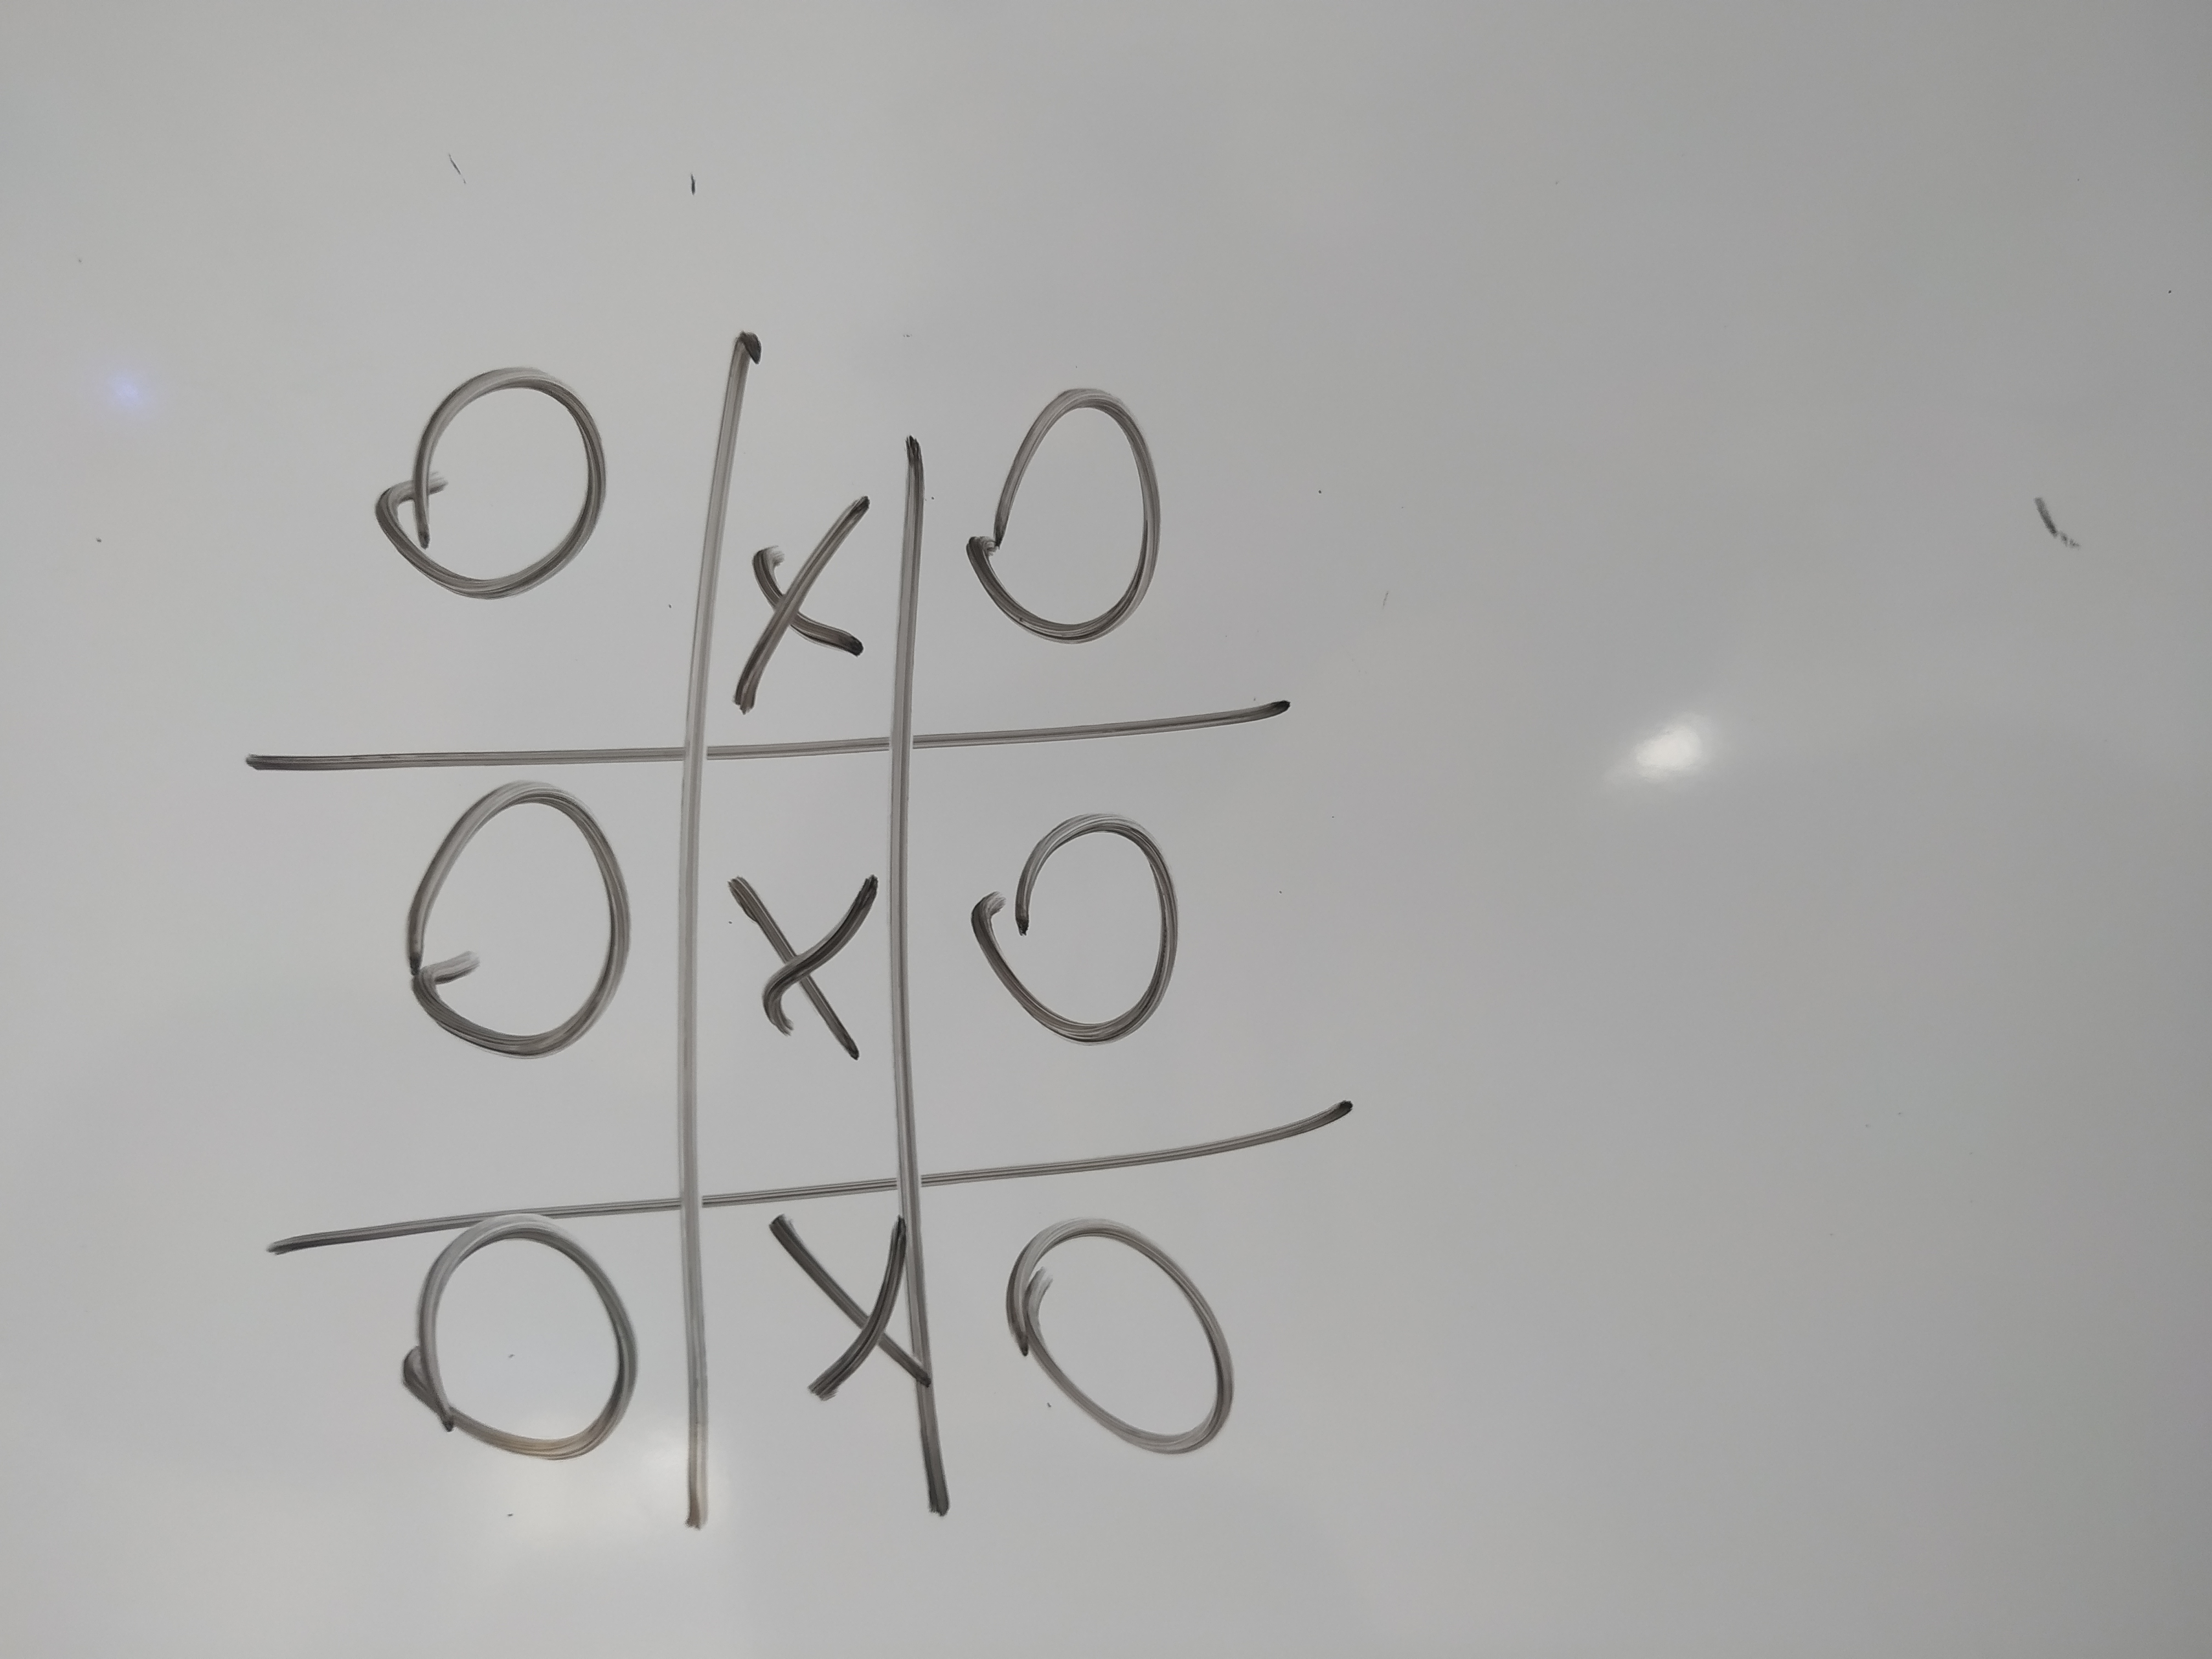 O O O
X X X
O O O